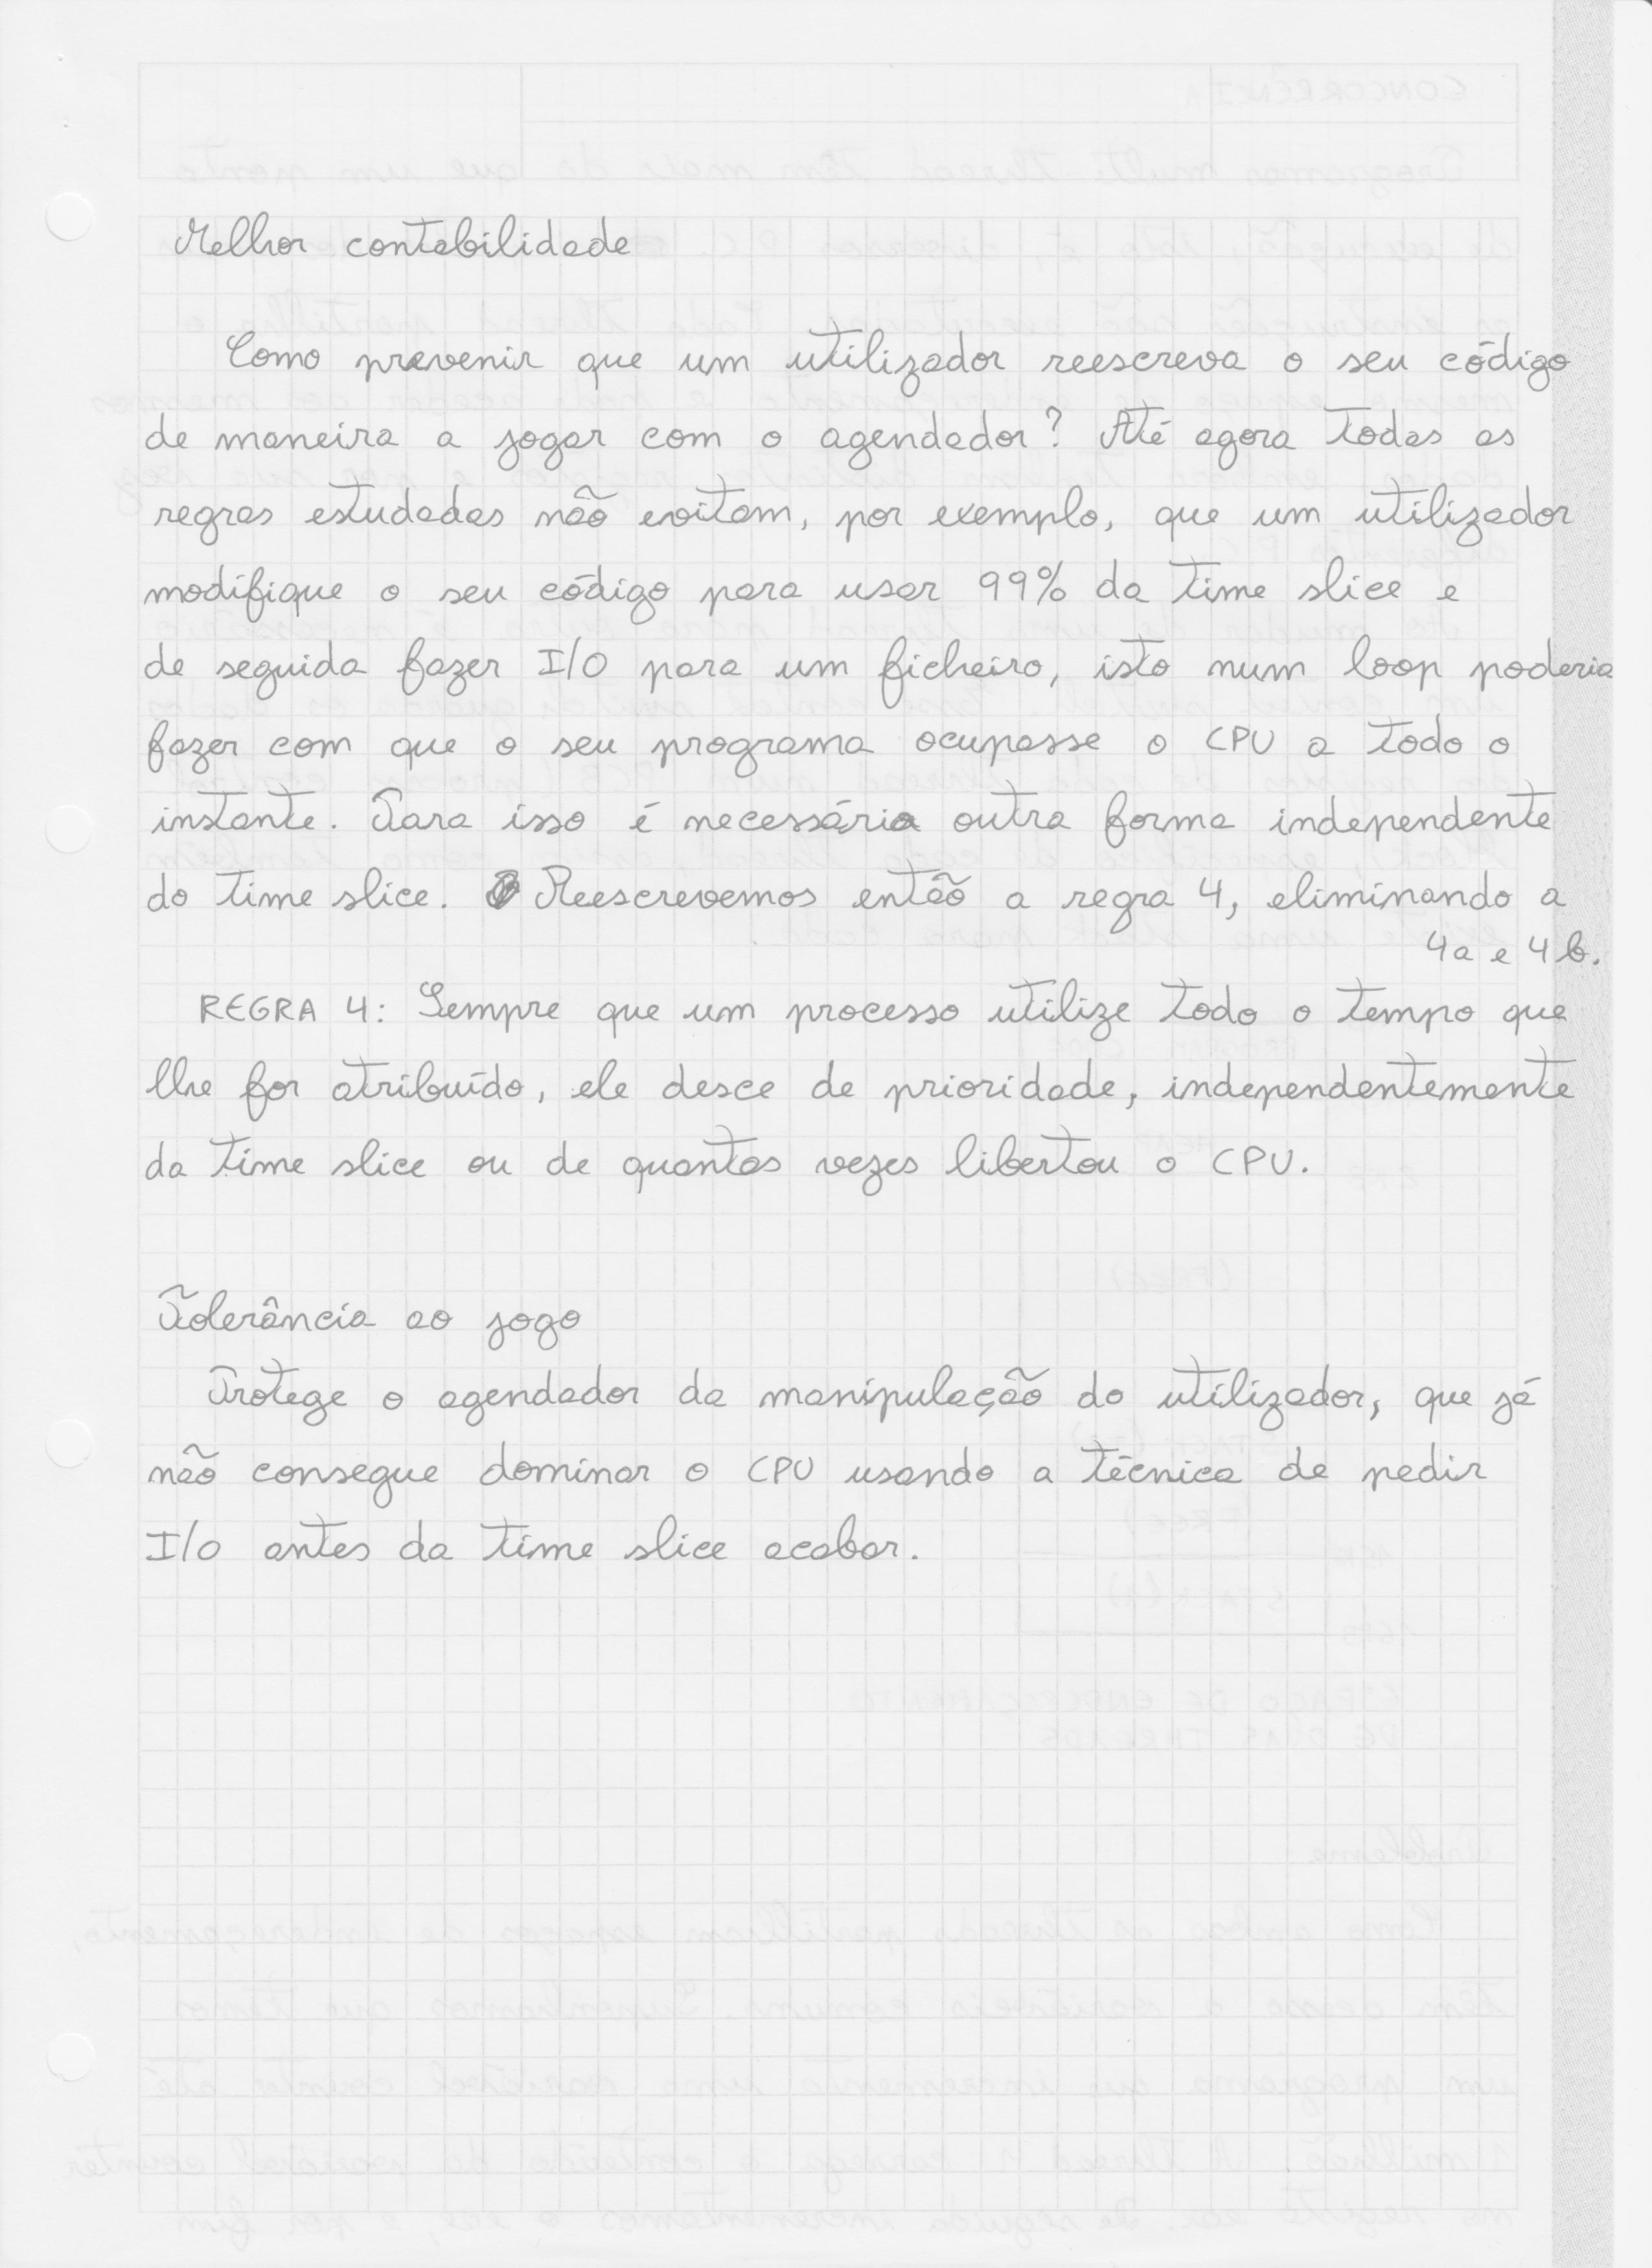 Melhor contabilidade
Como prevenir que um utilizador reescreva o seu código
de maneira a jogar com o agendador? Até agora todas as
regras estudadas não evitam, por exemplo, que um utilizador
modifique o seu código para usar 99% da time slice e
de seguida fazer I/O para um ficheiro, isto num loop poderia
fazer com que o seu programa ocupasse o CPU a todo o
instante. Para isso é necessária outra forma independente
do time slice. Reescrevemos então a regra 4, eliminando a
4a e 4b.
REGRA 4: Sempre que um processo utilize todo o tempo que
lhe for atribuído, ele desce de prioridade, independentemente
da time slice ou de quantas vezes libertou o CPU.
Tolerância ao jogo
Protege o agendador da manipulação do utilizador, que já
não consegue dominar o CPU usando a técnica de pedir
I/O antes da time slice acabar.